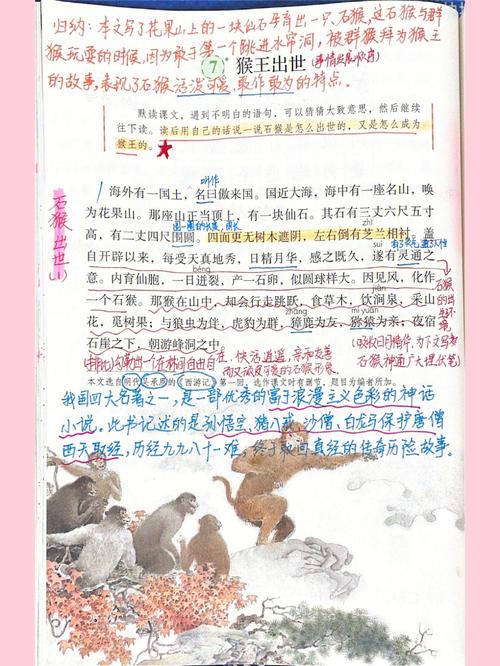 归纳：本文写了花果山上的一块仙石孕育出一只石猴，这石猴与群
猴玩耍的时候，因为敢于第一个跳进水帘洞，被群猴拜为猴王
的故事，表现了石猴活泼可爱、敢作敢为的特点。
7 猴王出世
(事情发展顺序)
默读课文，遇到不明白的语句，可以猜猜大致意思，然后继续
往下读。读后用自己的话说一说石猴是怎么出世的，又是怎么成为
猴王的。
叫作
海外有一国土，名曰傲来国。国近大海，海中有一座名山，唤
为花果山。那座山正当顶上，有一块仙石。其石有三丈六尺五寸
高，有二丈四尺围圆。四面更无树木遮阴，左右倒有芝兰相衬。盖
自开辟以来，每受天真地秀，日精月华，感之既久，遂有灵通之
意。内育仙胞，一日迸裂，产一石卵，似圆球样大。因见风，化作
一个石猴。那猴在山中，却会行走跳跃，食草木，饮涧泉，采山
花，觅树果；与狼虫为伴，虎豹为群，獐鹿为友，猕猿为亲；夜宿
石崖之下，朝游峰洞之中。
suì
bèng
jiàn
zhāng
mí yuán
石猴出世
(吸收日月精华，为下文写
石猴神通广大埋伏笔)
本文选自明代吴承恩的《西游记》第一回，选作课文时有删节，题目为编者所加。
我国四大名著之一，是一部优秀的富于浪漫主义色彩的神话
小说。此书记述的是孙悟空、猪八戒、沙僧、白龙马保护唐僧
西天取经，历经九九八十一难，终于取回真经的传奇历险故事。